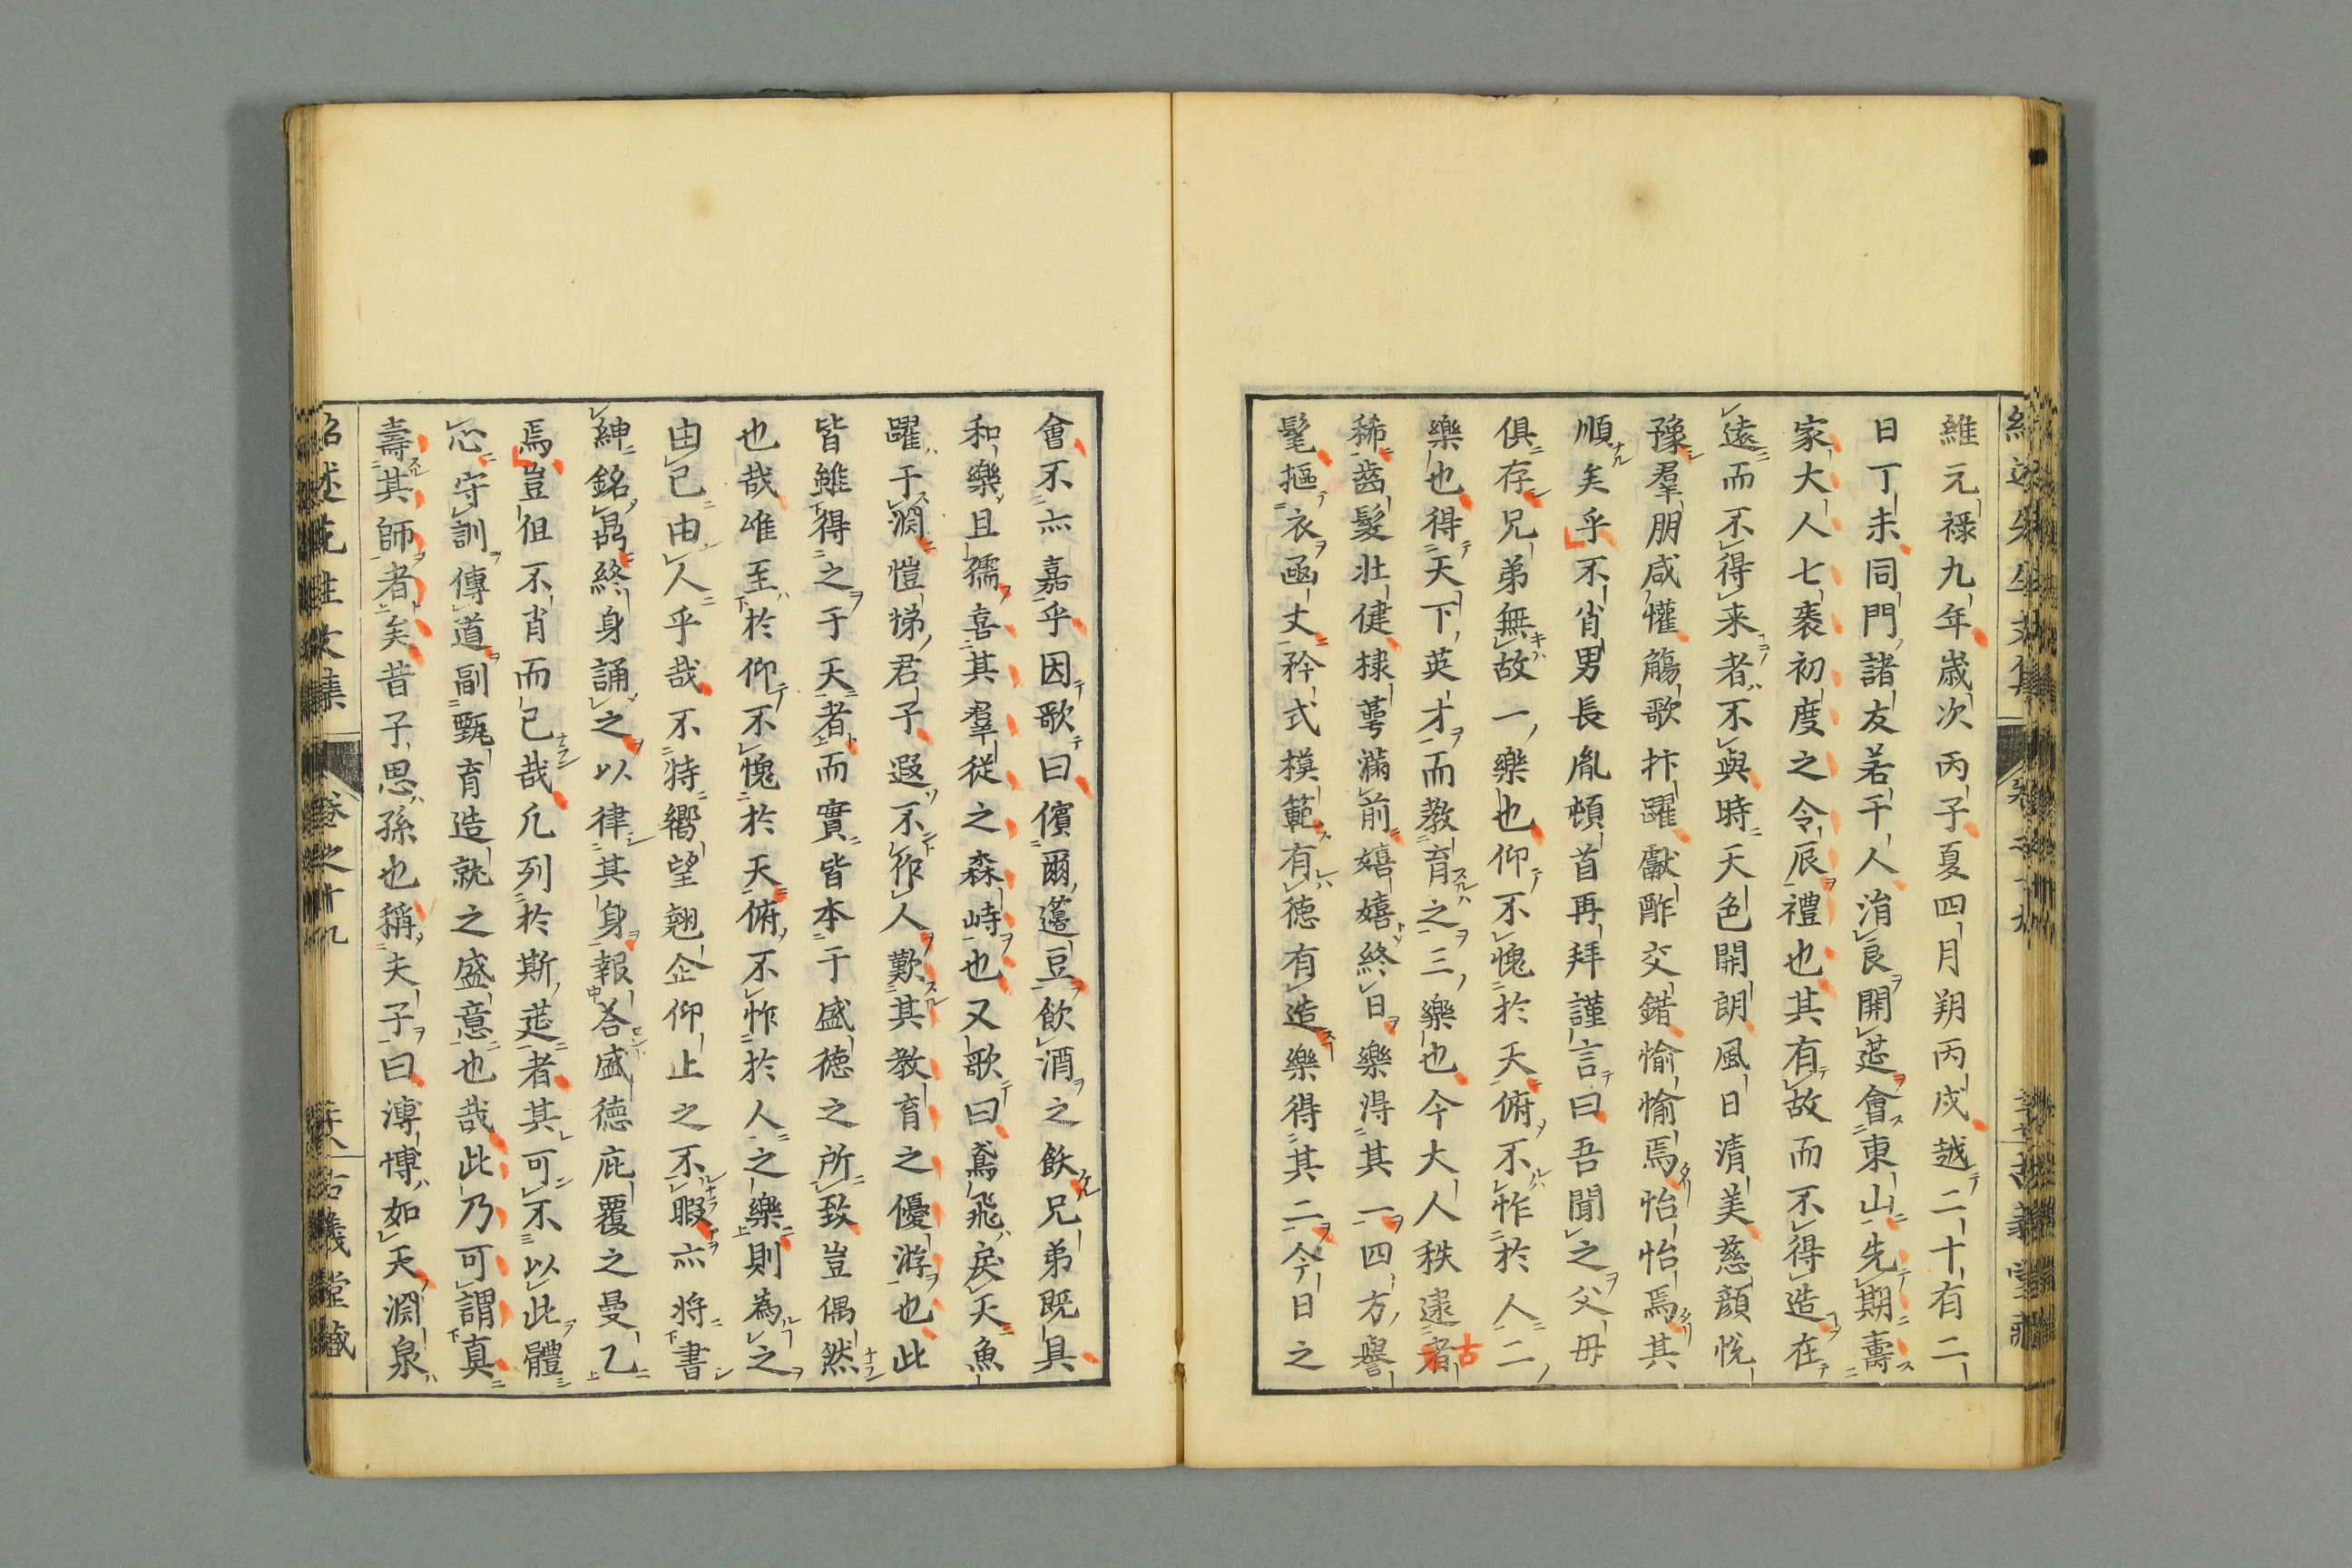 維元祿九年歳次丙子夏四月朔丙戌越二十有二
日丁未同門諸友若干人消良開莚會東山先期壽
家大人七袠初度之令辰禮也其有故而不得造在
遠而不得来者不與時天色開朗風日清美慈顔悅
豫羣朋咸懽觴歌抃躍獻酢交錯愉愉焉怡怡焉其
順矣乎不肖男長胤頓首再拜謹言曰吾聞之父母
俱存兄弟無故一樂也仰不愧於天俯不怍於人二
樂也得天下英才而教育之三樂也今大人秩逮者
稀齒髮壯健棣蕚滿前嬉嬉終日樂得其一四方譽
髦摳衣凾丈矜式模範有德有造樂得其二今日之
會不亦嘉乎因歌曰儐爾籩豆飲酒之飫兄弟既具
和樂且孺喜其羣從之森峙也又歌曰鳶飛戾天魚
躍于淵愷悌君子遐不作人歎其教育之優游也此
皆雖得之于天者而實皆本于盛德之所致豈偶然
也哉唯至於仰不愧於天俯不怍於人之樂則為之
由己由人乎哉不特嚮望翹企仰止之不暇亦將書
紳銘昺終身誦之以律其身報荅盛德庇覆之曼乙
焉豈徂不肖而已哉凢列於斯莚者其可不以此體
心守訓傳道副甄育造就之盛意也哉此乃可謂真
壽其師者矣昔子思孫也稱夫子曰溥博如天淵泉
紹述先生文集
卷之十九
古義堂藏